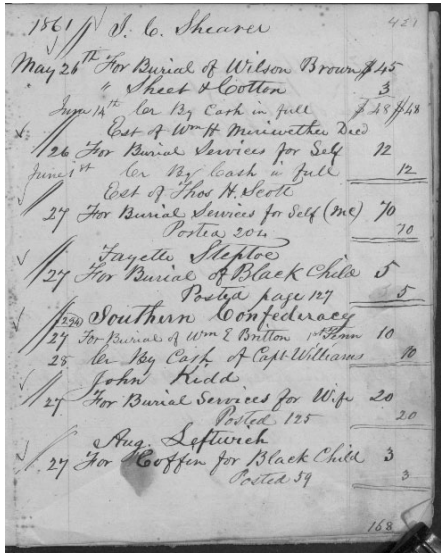 1861 // J. C. Shearer
May 26th For Burial of Wilson Brown $45
" Sheet & Cotton 3
June 14th Cr By Cash in full $48 $48
Est of Wm H. Meriwether Died
26 For Burial Services for Self 12
June 1st Cr By Cash in full 12
Est of Thos H. Scott
27 For Burial Services for Self (Mc) 70
Posted 204 70
Fayette Steptoe
27 For Burial of Black Child 5
Posted page 127 5
294 Southern Confederacy
27 For Burial of Wm E Britton 1st Tenn 10
28 Cr By Cash of Capt Williams 10
John Kidd
27 For Burial Services for Wife 20
Posted 125 20
Aug. Leftwich
27 For Coffin for Black Child 3
Posted 59 3
168